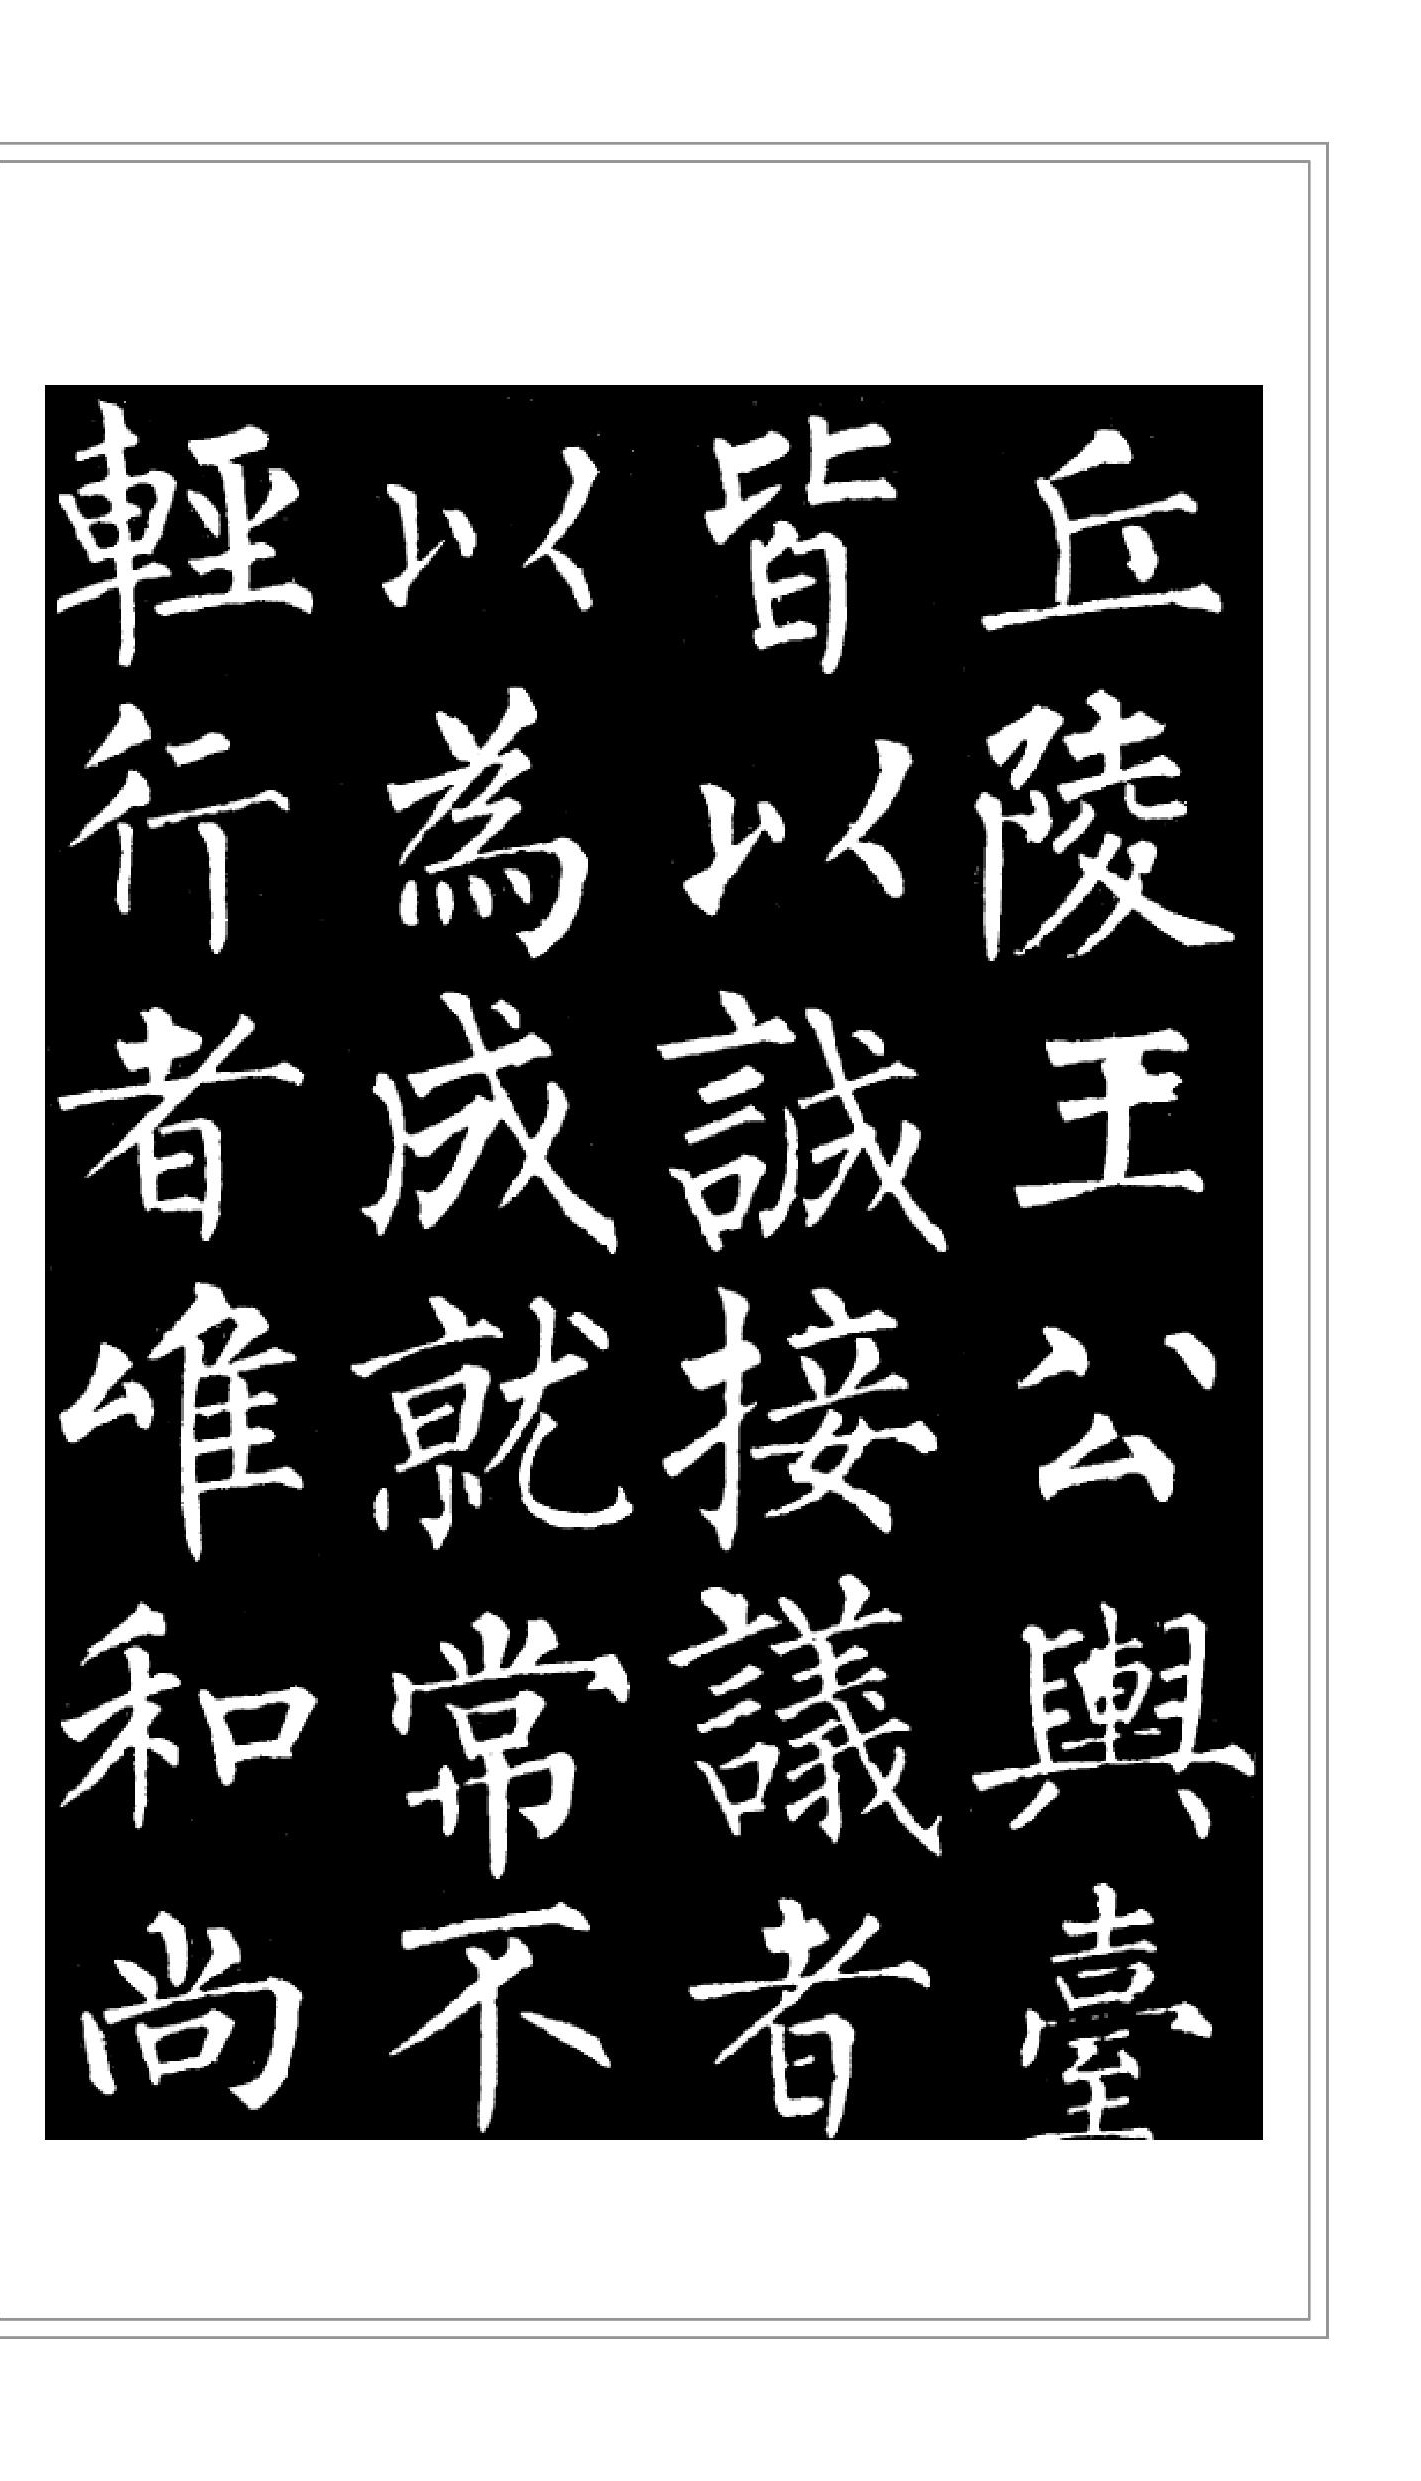 丘陵王公輿臺
皆以誠接議者
以為成就常不
輕行者唯和尚